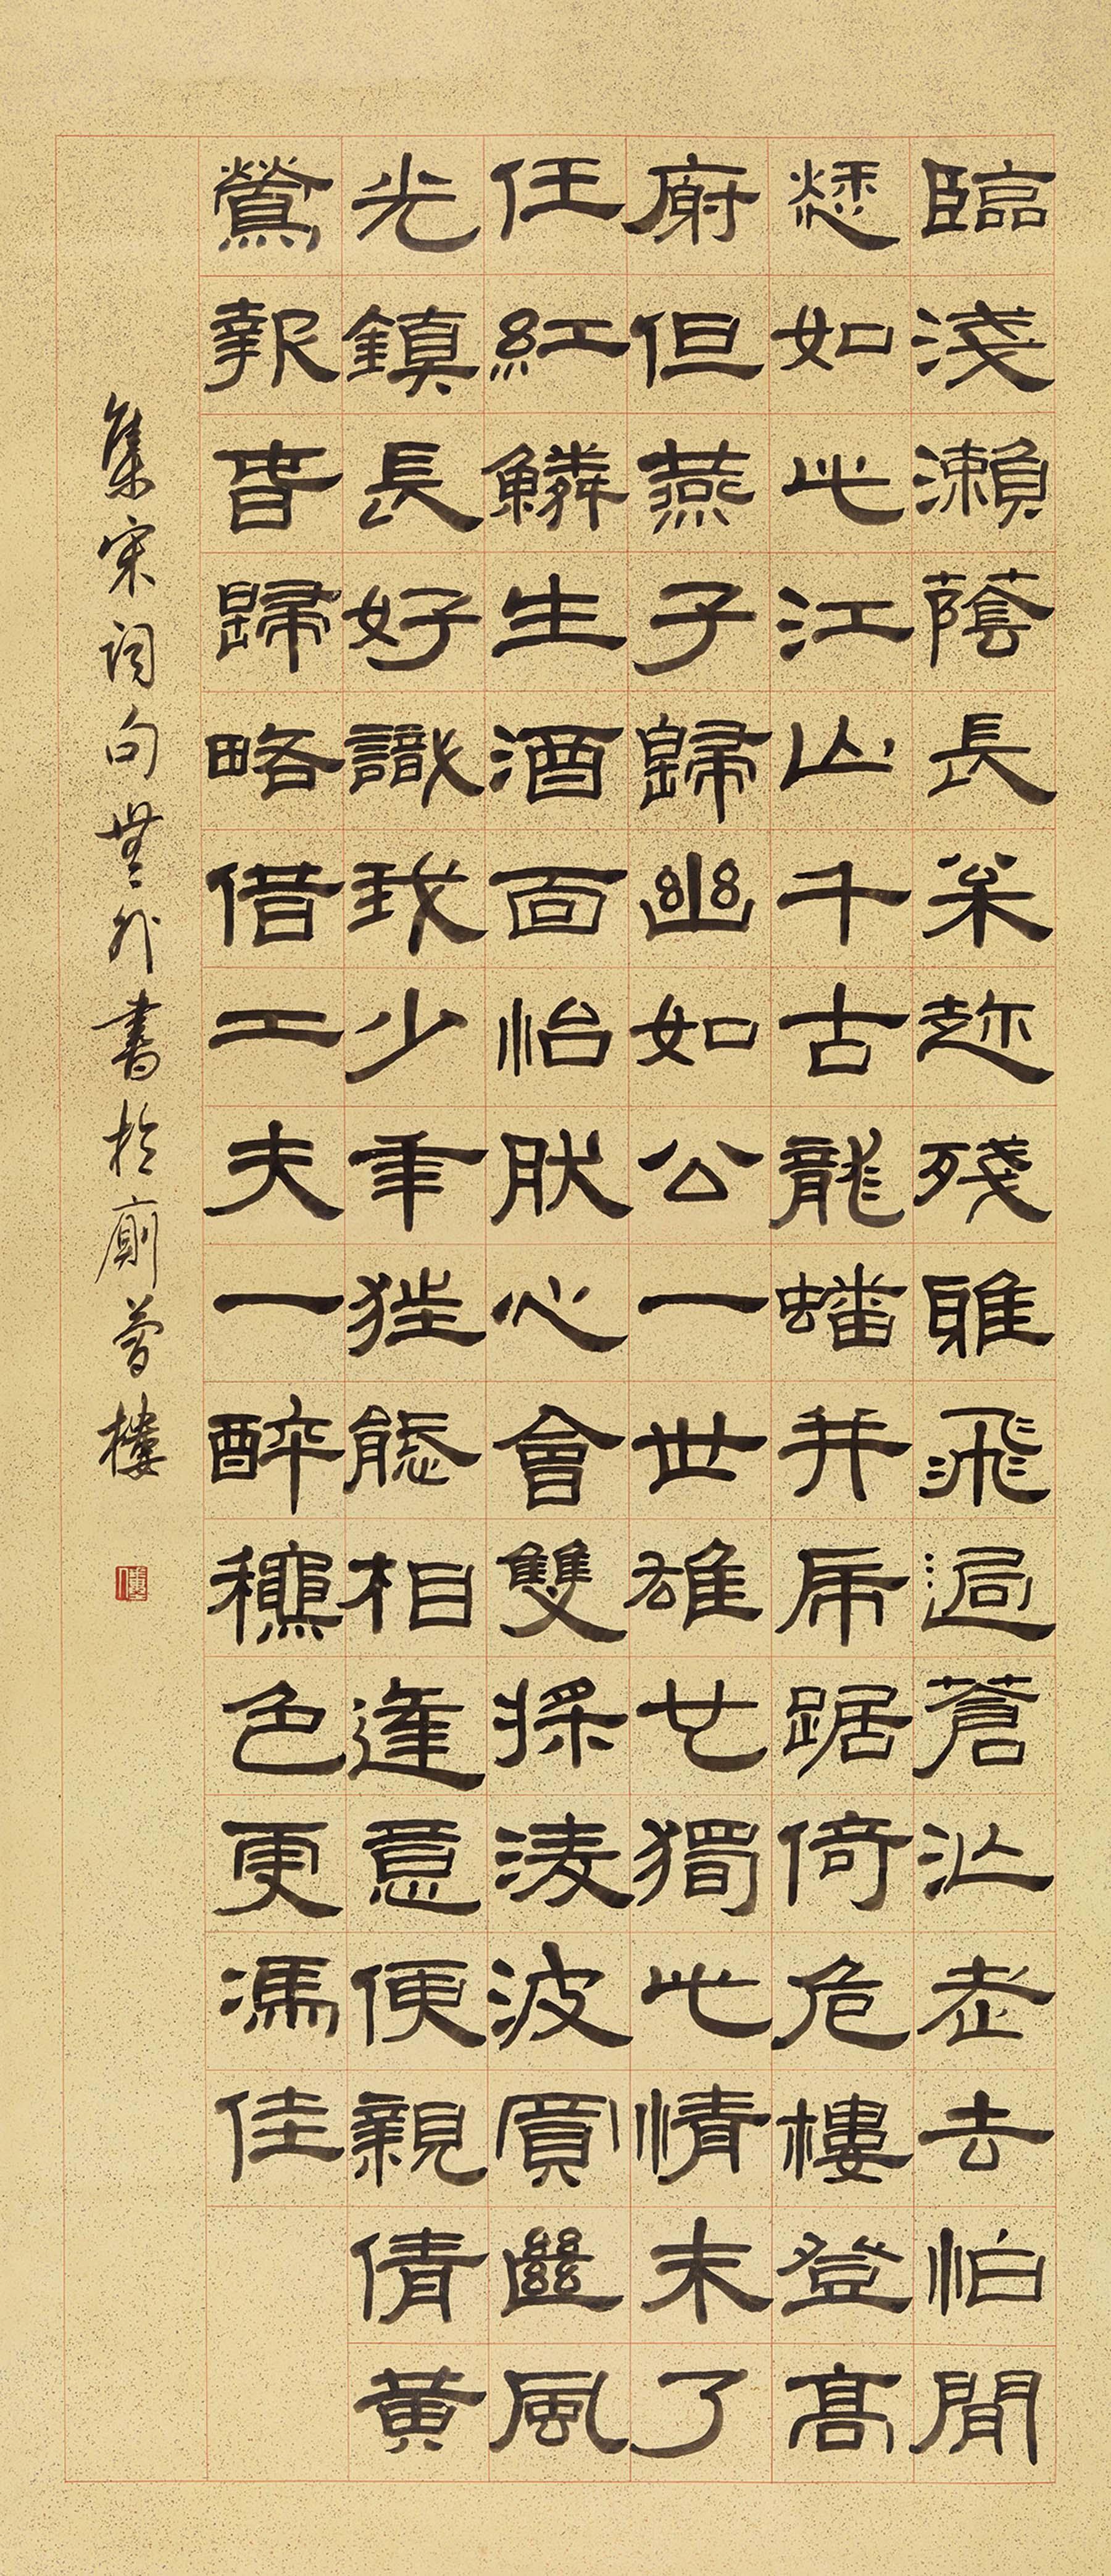 臨淺瀨蔭長枀趂殘雅飛過蒼茫老去怕聞
愁如此江山千古龍蟠并虎踞倚危樓登高
廚但燕子歸幽如公一世雄也獨此情未了
任紅鱗生酒面怡肰心會雙槳淩波買斷風
光鎮長好識我少年狂態相逢意便親倩黃
鶯報春歸略借工夫一醉龝色更馮佳
集宋詞句無外書於廁夢樓